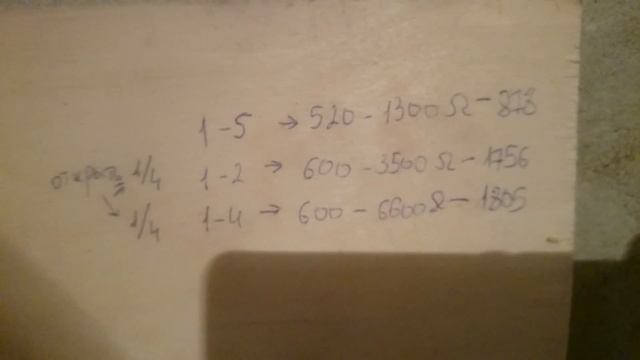 1-5 → 520-1300Ω-878
открыть 1/4 1-2 → 600-3500Ω-1756
1/4 1-4 → 600-6600Ω-1805